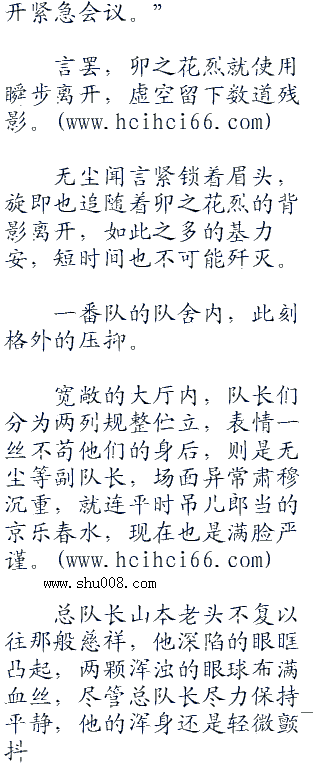 开紧急会议。”
言罢，卯之花烈就使用
瞬步离开，虚空留下数道残
影。(www.hcihci66.com)
无尘闻言紧锁着眉头，
旋即也追随着卯之花烈的背
影离开，如此之多的基力
安，短时间也不可能歼灭。
一番队的队舍内，此刻
格外的压抑。
宽敞的大厅内，队长们
分为两列规整伫立，表情一
丝不苟他们的身后，则是无
尘等副队长，场面异常肃穆
沉重，就连平时吊儿郎当的
京乐春水，现在也是满脸严
谨。(www.hcihci66.com)
www.shu008.com
总队长山本老头不复以
往那般慈祥，他深陷的眼眶
凸起，两颗浑浊的眼球布满
血丝，尽管总队长尽力保持
平静，他的浑身还是轻微颤
抖